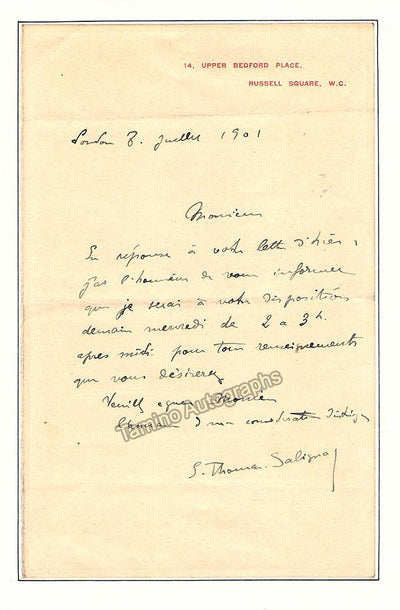 14, UPPER BEDFORD PLACE,
RUSSELL SQUARE, W.C.
London 8. Juillet 1901
Monsieur
En réponse à votre lettre d'hier,
j'ai l'honneur de vous informer
que je serai à votre disposition
demain mercredi de 2 à 3 h.
après midi pour tous renseignements
que vous désirerez
Veuillez agréer Monsieur
l'assurance de ma considération distinguée
S. Thomas. Salignac
Tamino Autographs